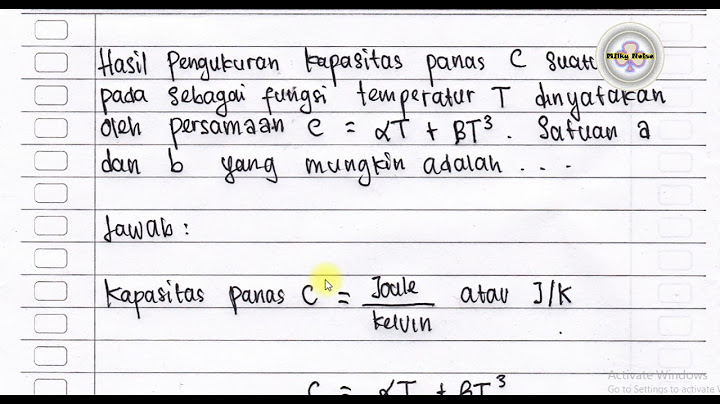 Milky Noise
Hasil Pengukuran kapasitas panas C suatu
pada sebagai fungsi temperatur T dinyatakan
oleh persamaan C = αT + βT³. Satuan a
dan b yang mungkin adalah ....
Jawab:
Kapasitas panas C = Joule atau J/K
kelvin
C = αT + βT³
Activate Windows
Go to Settings to activate W